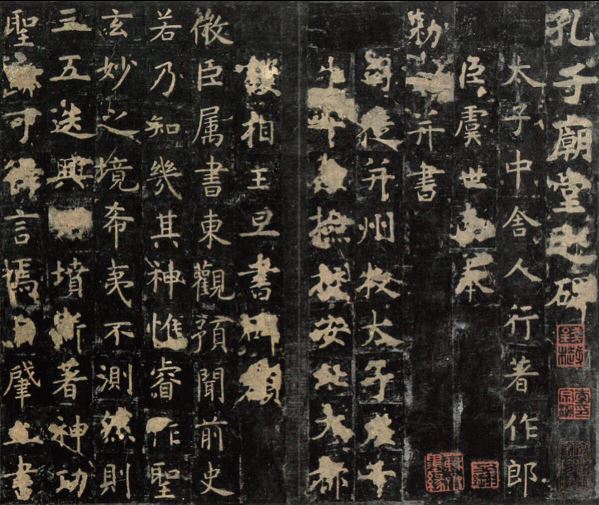 孔子廟堂之碑
太子中舍人行著作郎
臣虞世南奉
勅并書
司徒并州牧太子左千
牛兼撿校安北大都
護相王旦書碑額
微臣属書東觀預聞前史
若乃知幾其神惟睿作聖
玄妙之境希夷不測然則
三五迭興墳斯著神功
聖迹可得言焉自肇立書